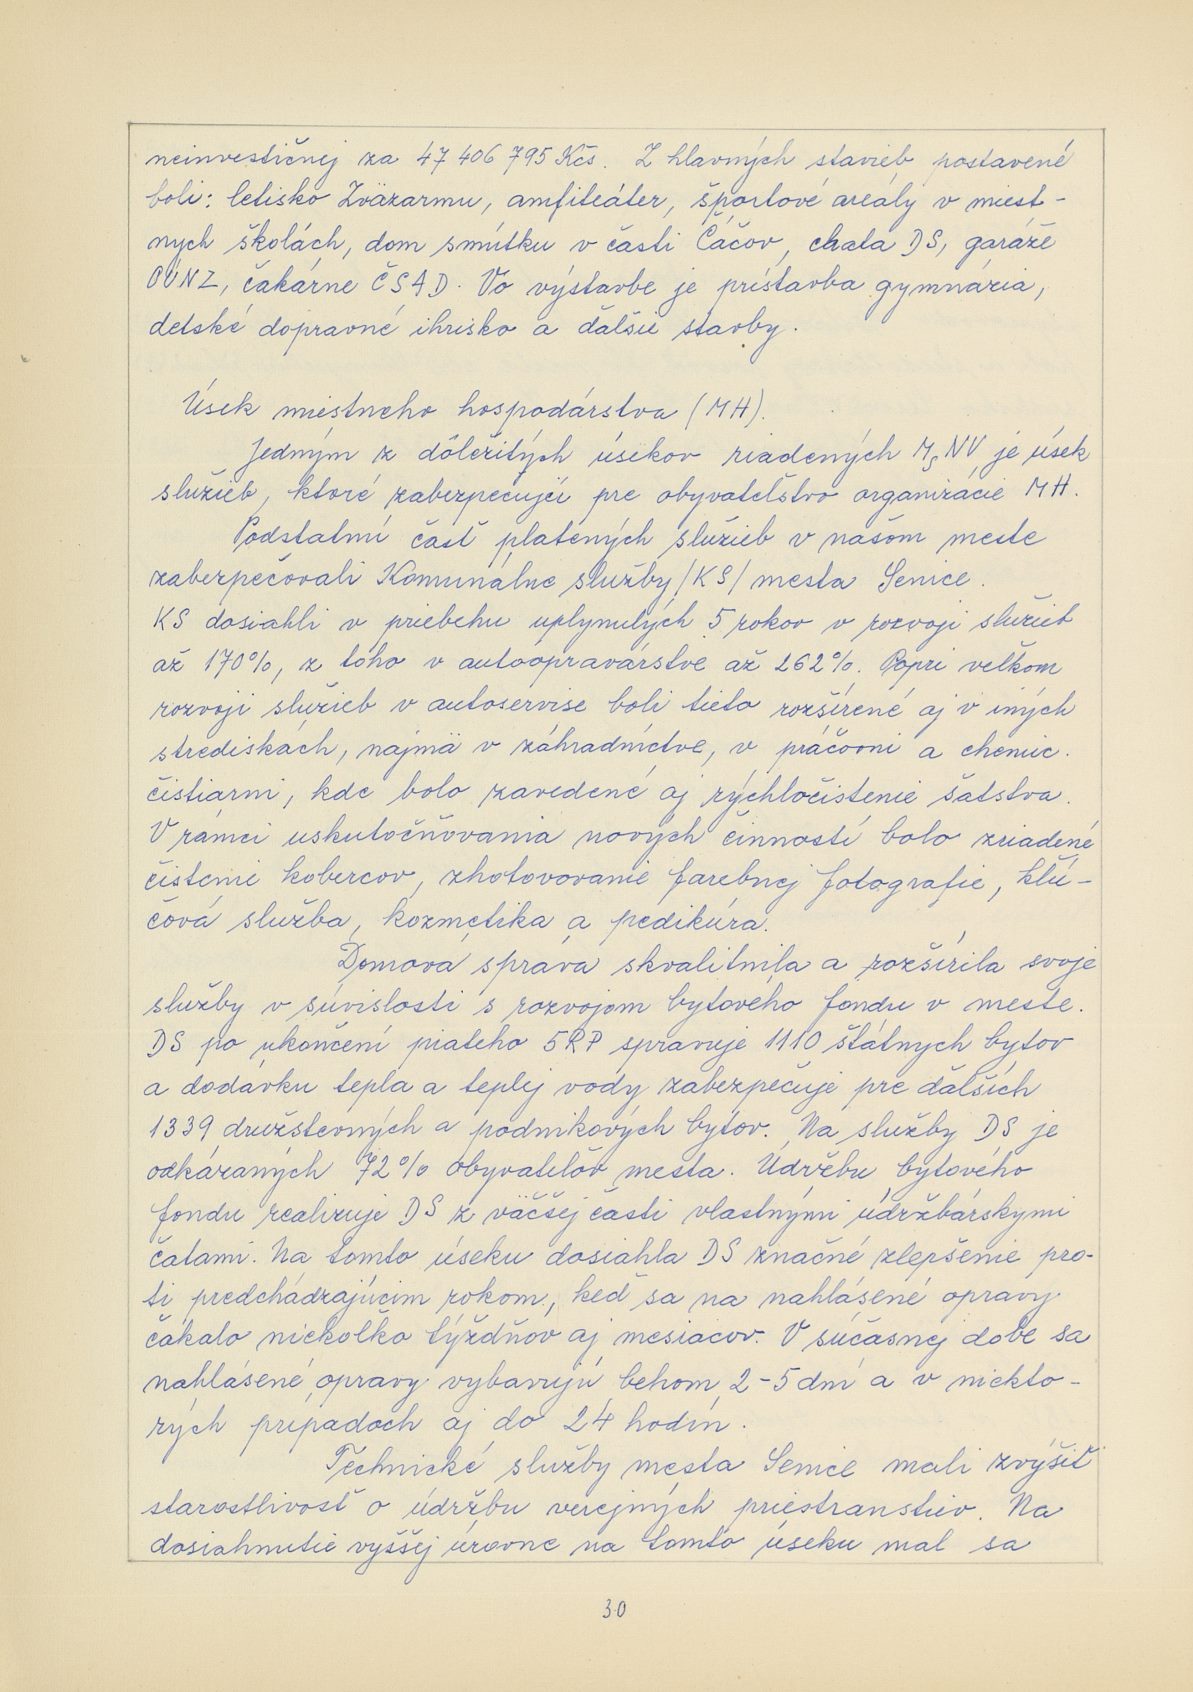 neinvestičnej za 47 406 795 Kčs. Z hlavných stavieb postavené
boli: letisko Zväzarmu, amfiteáter, športové areály v miest-
nych školách, dom smútku v časti Čáčov, chata DS, garáže
OÚNZ, čakárne ČSAD. Vo výstavbe je prístavba gymnázia,
detské dopravné ihrisko a ďalšie stavby.
Úsek miestneho hospodárstva (MH).
Jedným z dôležitých úsekov riadených MsNV je úsek
služieb, ktoré zabezpečujú pre obyvateľstvo organizácie MH.
Podstatnú časť platených služieb v našom meste
zabezpečovali Komunálne služby /KS/ mesta Senice.
KS dosiahli v priebehu uplynulých 5 rokov v rozvoji služieb
až 170%, z toho v autoopravárstve až 262%. Popri veľkom
rozvoji služieb v autoservise boli tieto rozšírené aj v iných
strediskách, najmä v záhradníctve, v práčovni a chemic.
čistiarni, kde bolo zavedené aj rýchločistenie šatstva.
V rámci uskutočňovania nových činností bolo zriadené
čistenie kobercov, zhotovovanie farebnej fotografie, kľú-
čová služba, kozmetika a pedikúra.
Domová správa skvalitnila a rozšírila svoje
služby v súvislosti s rozvojom bytového fondu v meste.
DS po ukončení piateho 5RP spravuje 1110 štátnych bytov
a dodávku tepla a teplej vody zabezpečuje pre ďalších
1339 družstevných a podnikových bytov. Na služby DS je
odkázaných 72% obyvateľov mesta. Údržbu bytového
fondu realizuje DS z väčšej časti vlastnými údržbárskymi
čatami. Na tomto úseku dosiahla DS značné zlepšenie pro-
ti predchádzajúcim rokom, keď sa na nahlásené opravy
čakalo niekoľko týždňov aj mesiacov. V súčasnej dobe sa
nahlásené opravy vybavujú behom 2-5 dní a v niekto-
rých prípadoch aj do 24 hodín.
Technické služby mesta Senice mali zvýšiť
starostlivosť o údržbu verejných priestranstiev. Na
dosiahnutie vyššej úrovne na tomto úseku mal sa
30